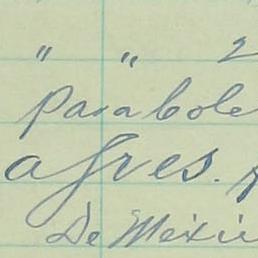 " " 2
Parabole
afres.
De Mexi